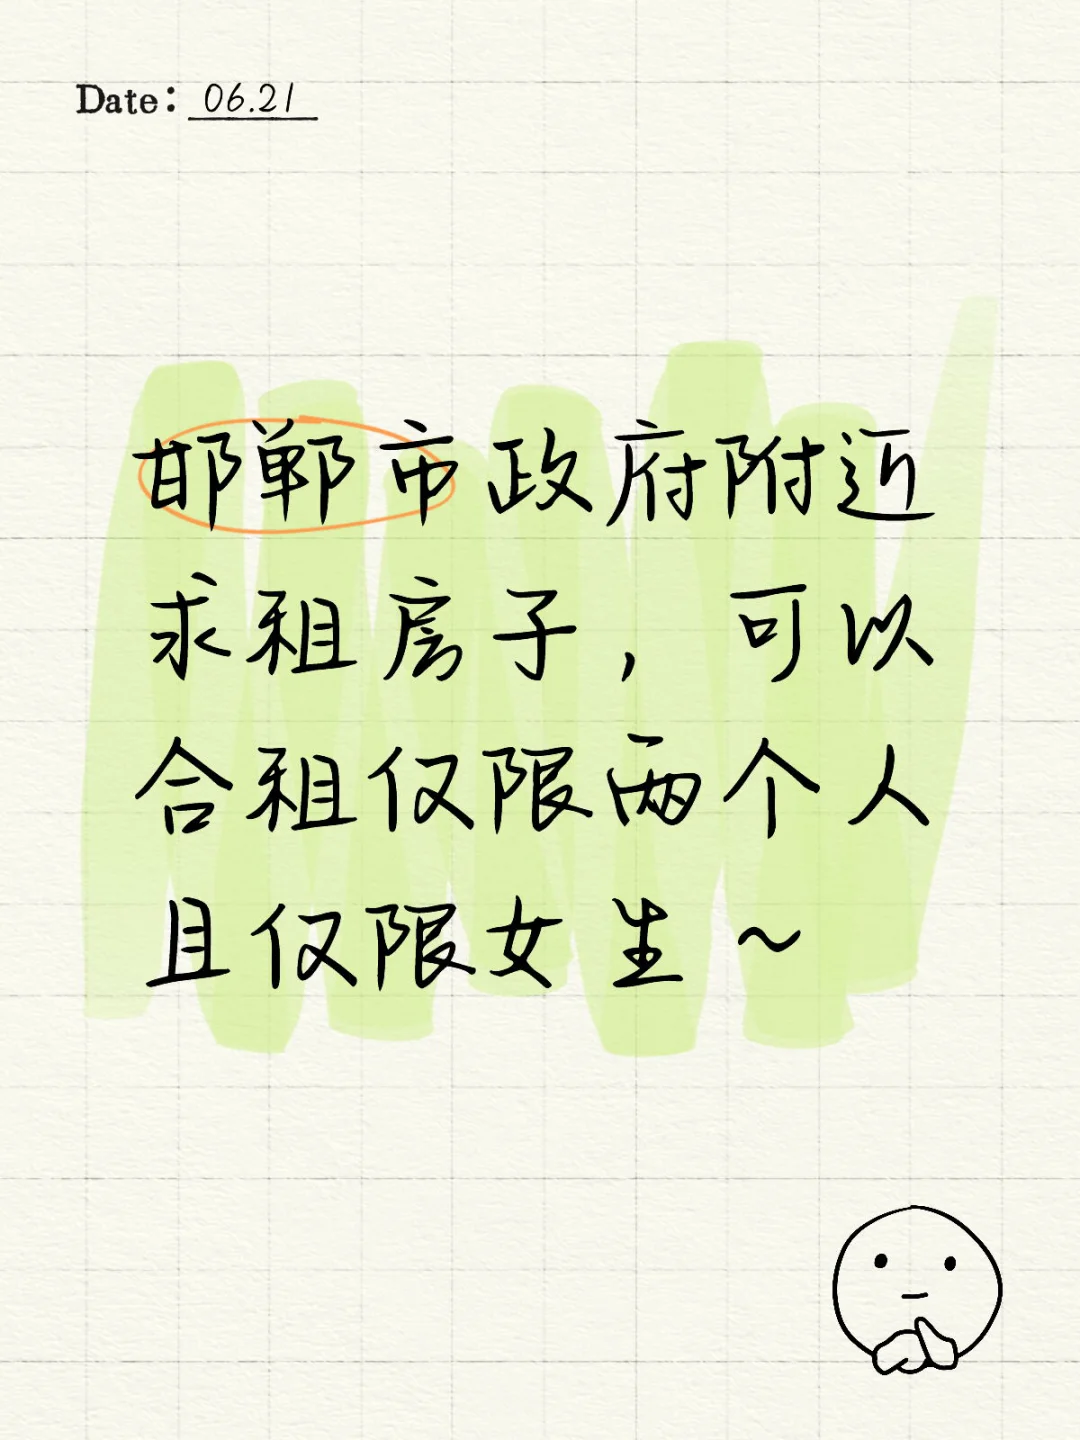 Date: 06.21
邯郸市政府附近
求租房子，可以
合租仅限两个人
且仅限女生～